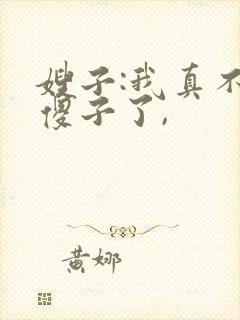 嫂子:我真不
傻子了,
黄娜